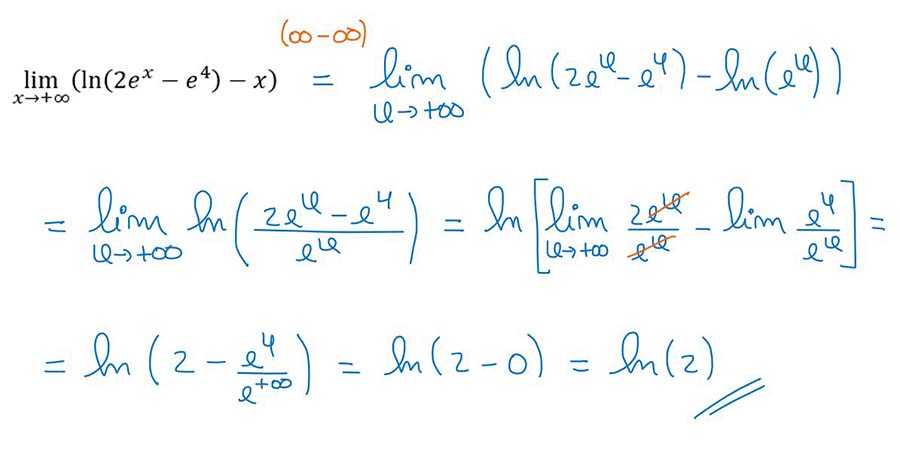 (∞ − ∞)
lim x→+∞ (ln(2e^x − e^4) − x) = lim x→+∞ (ln(2e^x − e^4) − ln(e^x))
= lim x→+∞ ln((2e^x − e^4)/e^x) = ln[lim x→+∞ 2e^x/e^x − lim e^4/e^x] =
= ln(2 − e^4/e^+∞) = ln(2 − 0) = ln(2)